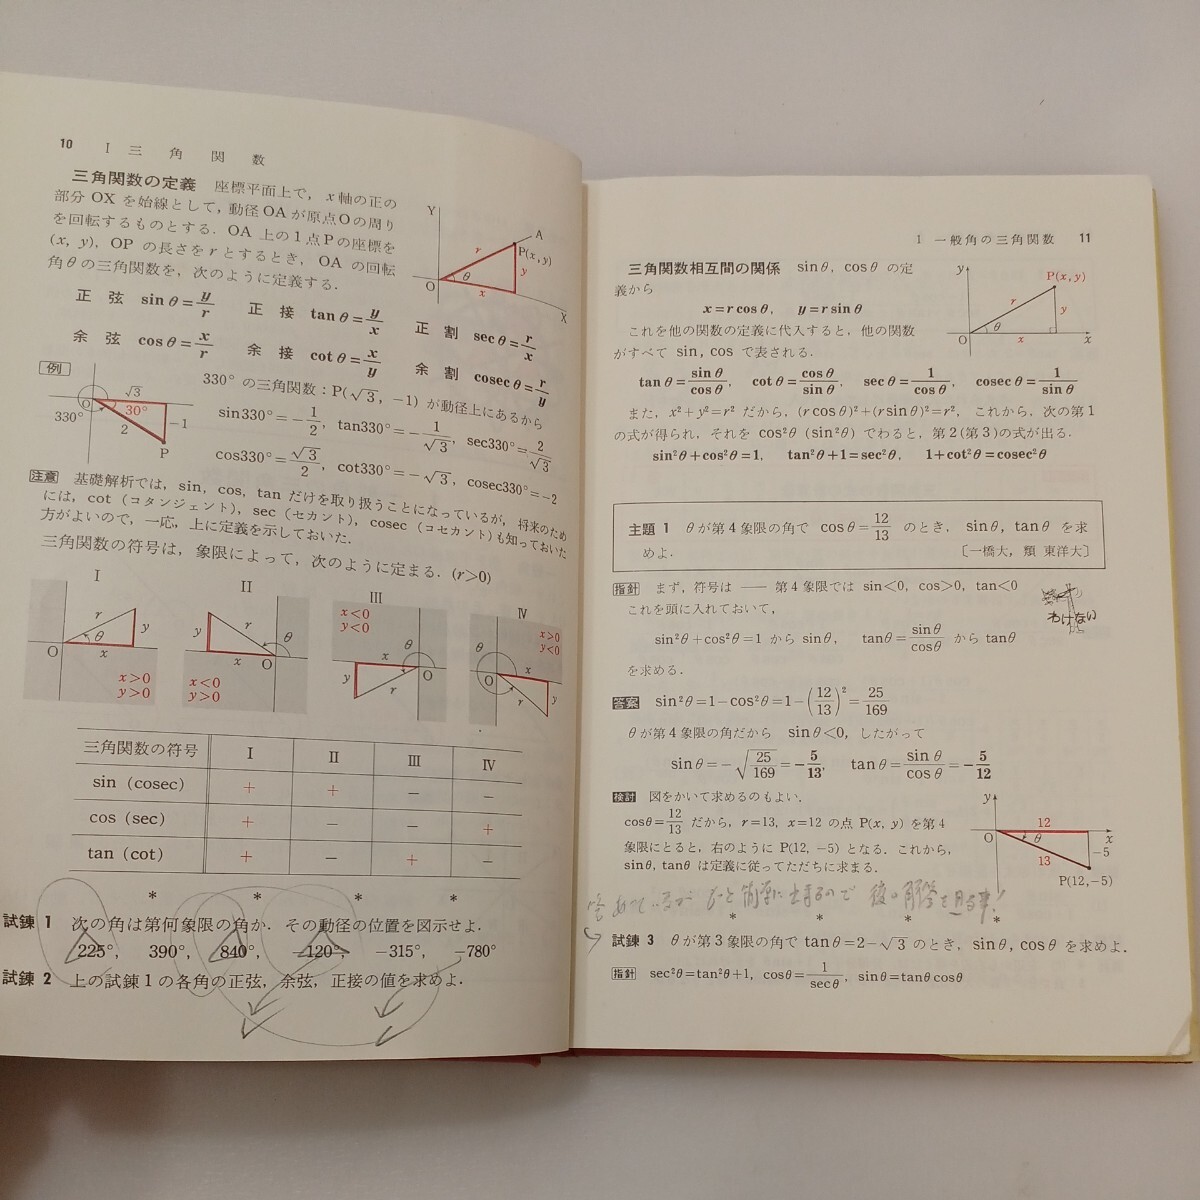 10 I 三角関数
三角関数の定義 座標平面上で，x軸の正の
部分 OX を始線として，動径OAが原点Oの周り
を回転するものとする．OA 上の1点Pの座標を
(x, y)，OP の長さを r とするとき，OA の回転
角θの三角関数を，次のように定義する．
Y
A
P(x, y)
r
y
θ
O
x
X
正弦 sinθ=y/r 正接 tanθ=y/x 正割 secθ=r/x
余弦 cosθ=x/r 余接 cotθ=x/y 余割 cosecθ=r/y
例
330°の三角関数：P(√3, -1) が動径上にあるから
sin330°=-1/2, tan330°=-1/√3, sec330°=2/√3
cos330°=√3/2, cot330°=-√3, cosec330°=-2
√3
O
30°
330°
2
-1
P
注意 基礎解析では，sin, cos, tan だけを取り扱うことになっているが，将来のため
には，cot (コタンジェント)，sec (セカント)，cosec (コセカント) も知っておいた
方がよいので，一応，上に定義を示しておいた．
三角関数の符号は，象限によって，次のように定まる．(r>0)
I
r
y
θ
O
x
x>0
y>0
II
y
r
θ
x
O
x<0
y>0
III
x<0
y<0
θ
x
O
y
r
IV
x>0
y<0
θ
x
O
r
y
三角関数の符号 I II III IV
sin (cosec) + + − −
cos (sec) + − − +
tan (cot) + − + −
* * * *
試錬 1 次の角は第何象限の角か．その動径の位置を図示せよ．
225°, 390°, 840°, -120°, -315°, -780°
試錬 2 上の試錬1の各角の正弦，余弦，正接の値を求めよ．
I 一般角の三角関数 11
三角関数相互間の関係 sinθ, cosθ の定
義から
x=r cosθ, y=r sinθ
これを他の関数の定義に代入すると，他の関数
がすべて sin, cos で表される．
y
P(x, y)
r
y
θ
O
x
x
tanθ=sinθ/cosθ, cotθ=cosθ/sinθ, secθ=1/cosθ, cosecθ=1/sinθ
また，x²+y²=r² だから，(r cosθ)²+(r sinθ)²=r², これから，次の第1
の式が得られ，それを cos²θ (sin²θ) でわると，第2(第3)の式が出る．
sin²θ+cos²θ=1, tan²θ+1=sec²θ, 1+cot²θ=cosec²θ
主題 1 θが第4象限の角で cosθ=12/13 のとき，sinθ, tanθ を求
めよ． 〔一橋大，類 東洋大〕
指針 まず，符号は —— 第4象限では sin<0, cos>0, tan<0
これを頭に入れておいて，
わけない
sin²θ+cos²θ=1 から sinθ, tanθ=sinθ/cosθ から tanθ
を求める．
答案 sin²θ=1-cos²θ=1-(12/13)²=25/169
θが第4象限の角だから sinθ<0, したがって
sinθ=-√25/169=-5/13, tanθ=sinθ/cosθ=-5/12
検討 図をかいて求めるのもよい．
cosθ=12/13 だから，r=13, x=12 の点 P(x, y) を第4
象限にとると，右のように P(12, -5) となる．これから，
sinθ, tanθ は定義に従ってただちに求まる．
y
12
O
θ
x
13
-5
P(12, -5)
* * * *
試錬 3 θが第3象限の角で tanθ=2-√3 のとき，sinθ, cosθ を求めよ．
指針 sec²θ=tan²θ+1, cosθ=1/secθ, sinθ=tanθcosθ